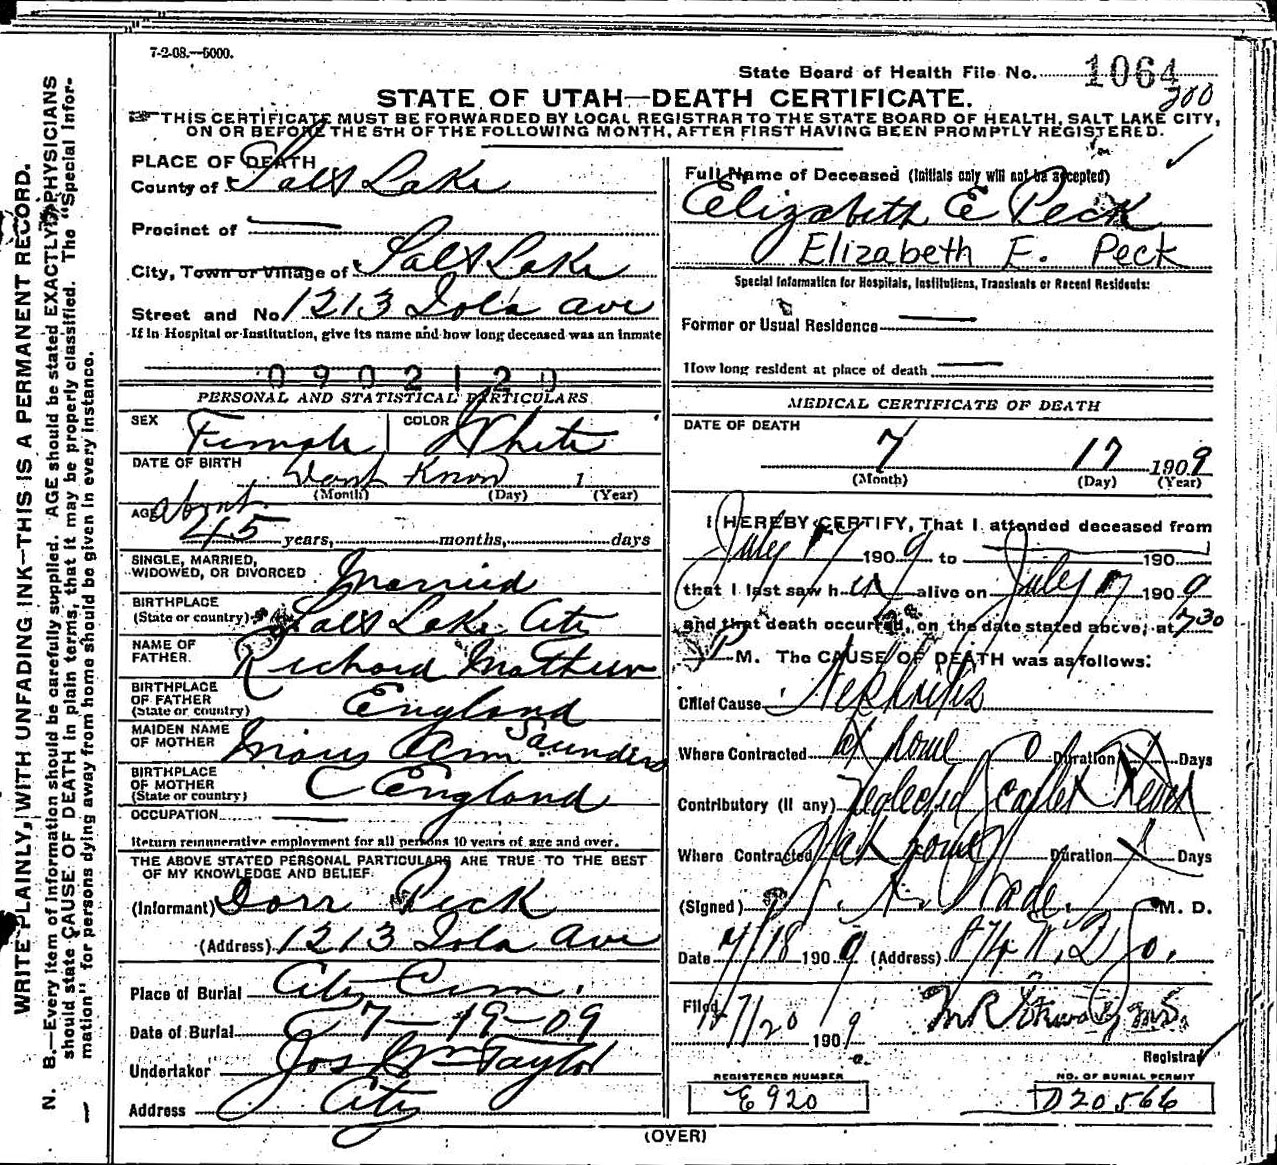 7-2-08.—5000.
State Board of Health File No. 1064
200
STATE OF UTAH—DEATH CERTIFICATE.
THIS CERTIFICATE MUST BE FORWARDED BY LOCAL REGISTRAR TO THE STATE BOARD OF HEALTH, SALT LAKE CITY,
ON OR BEFORE THE 5TH OF THE FOLLOWING MONTH, AFTER FIRST HAVING BEEN PROMPTLY REGISTERED.
WRITE PLAINLY, WITH UNFADING INK—THIS IS A PERMANENT RECORD.
N. B.—Every item of information should be carefully supplied. AGE should be stated EXACTLY. PHYSICIANS
should state CAUSE OF DEATH in plain terms, that it may be properly classified. The "Special Infor-
mation" for persons dying away from home should be given in every instance.
PLACE OF DEATH
County of Salt Lake
Precinct of —
City, Town or Village of Salt Lake
Street and No. 1213 Iola Ave
If in Hospital or Institution, give its name and how long deceased was an inmate
0902120
PERSONAL AND STATISTICAL PARTICULARS
SEX Female COLOR White
DATE OF BIRTH Dont Know 1
(Month) (Day) (Year)
AGE about
45 years, months, days
SINGLE, MARRIED,
WIDOWED, OR DIVORCED Married
BIRTHPLACE
(State or country) Salt Lake City
NAME OF
FATHER. Richard
BIRTHPLACE
OF FATHER
(State or country) England
MAIDEN NAME
OF MOTHER Mary Ann Saunders
BIRTHPLACE
OF MOTHER
(State or country) England
OCCUPATION —
Return remunerative employment for all persons 10 years of age and over.
THE ABOVE STATED PERSONAL PARTICULARS ARE TRUE TO THE BEST
OF MY KNOWLEDGE AND BELIEF.
(Informant) Dorr Peck
(Address) 1213 Iola Ave
Place of Burial City Cem.
Date of Burial 7-19-09
Undertaker Jos Wm Taylor
Address City
Full Name of Deceased (Initials only will not be accepted)
Elizabeth E Peck
Elizabeth E. Peck
Special Information for Hospitals, Institutions, Transients or Recent Residents:
Former or Usual Residence —
How long resident at place of death —
MEDICAL CERTIFICATE OF DEATH
DATE OF DEATH
7 17 1909
(Month) (Day) (Year)
I HEREBY CERTIFY, That I attended deceased from
July 17 1909 to 190
that I last saw her alive on July 17 1909
and that death occurred, on the date stated above, at 7 30
P M. The CAUSE OF DEATH was as follows:
Chief Cause Nephritis
Where Contracted at home Duration Days
Contributory (if any) Neglected Scarlet Fever
Where Contracted at home Duration Days
(Signed) Wade. M. D.
Date 7/18 1909 (Address)
Filed 7/20 1909
Registrar
REGISTERED NUMBER
E 920
NO. OF BURIAL PERMIT
D20566
(OVER)